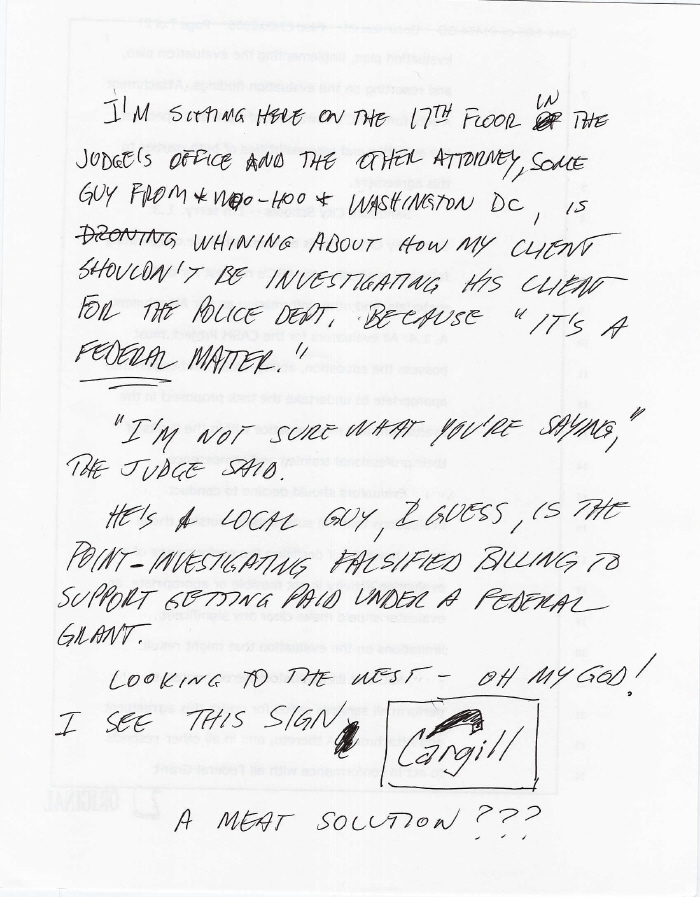 I'M SITTING HERE ON THE 17TH FLOOR IN THE
JUDGE'S OFFICE AND THE OTHER ATTORNEY, SOME
GUY FROM * WOO-HOO * WASHINGTON DC, IS
DRONING WHINING ABOUT HOW MY CLIENT
SHOULDN'T BE INVESTIGATING HIS CLIENT
FOR THE POLICE DEPT. BECAUSE "IT'S A
FEDERAL MATTER."
"I'M NOT SURE WHAT YOU'RE SAYING,"
THE JUDGE SAID.
HE'S A LOCAL GUY, I GUESS, IS THE
POINT-INVESTIGATING FALSIFIED BILLING TO
SUPPORT GETTING PAID UNDER A FEDERAL
GRANT.
LOOKING TO THE WEST - OH MY GOD!
I SEE THIS SIGN
Cargill
A MEAT SOLUTION???